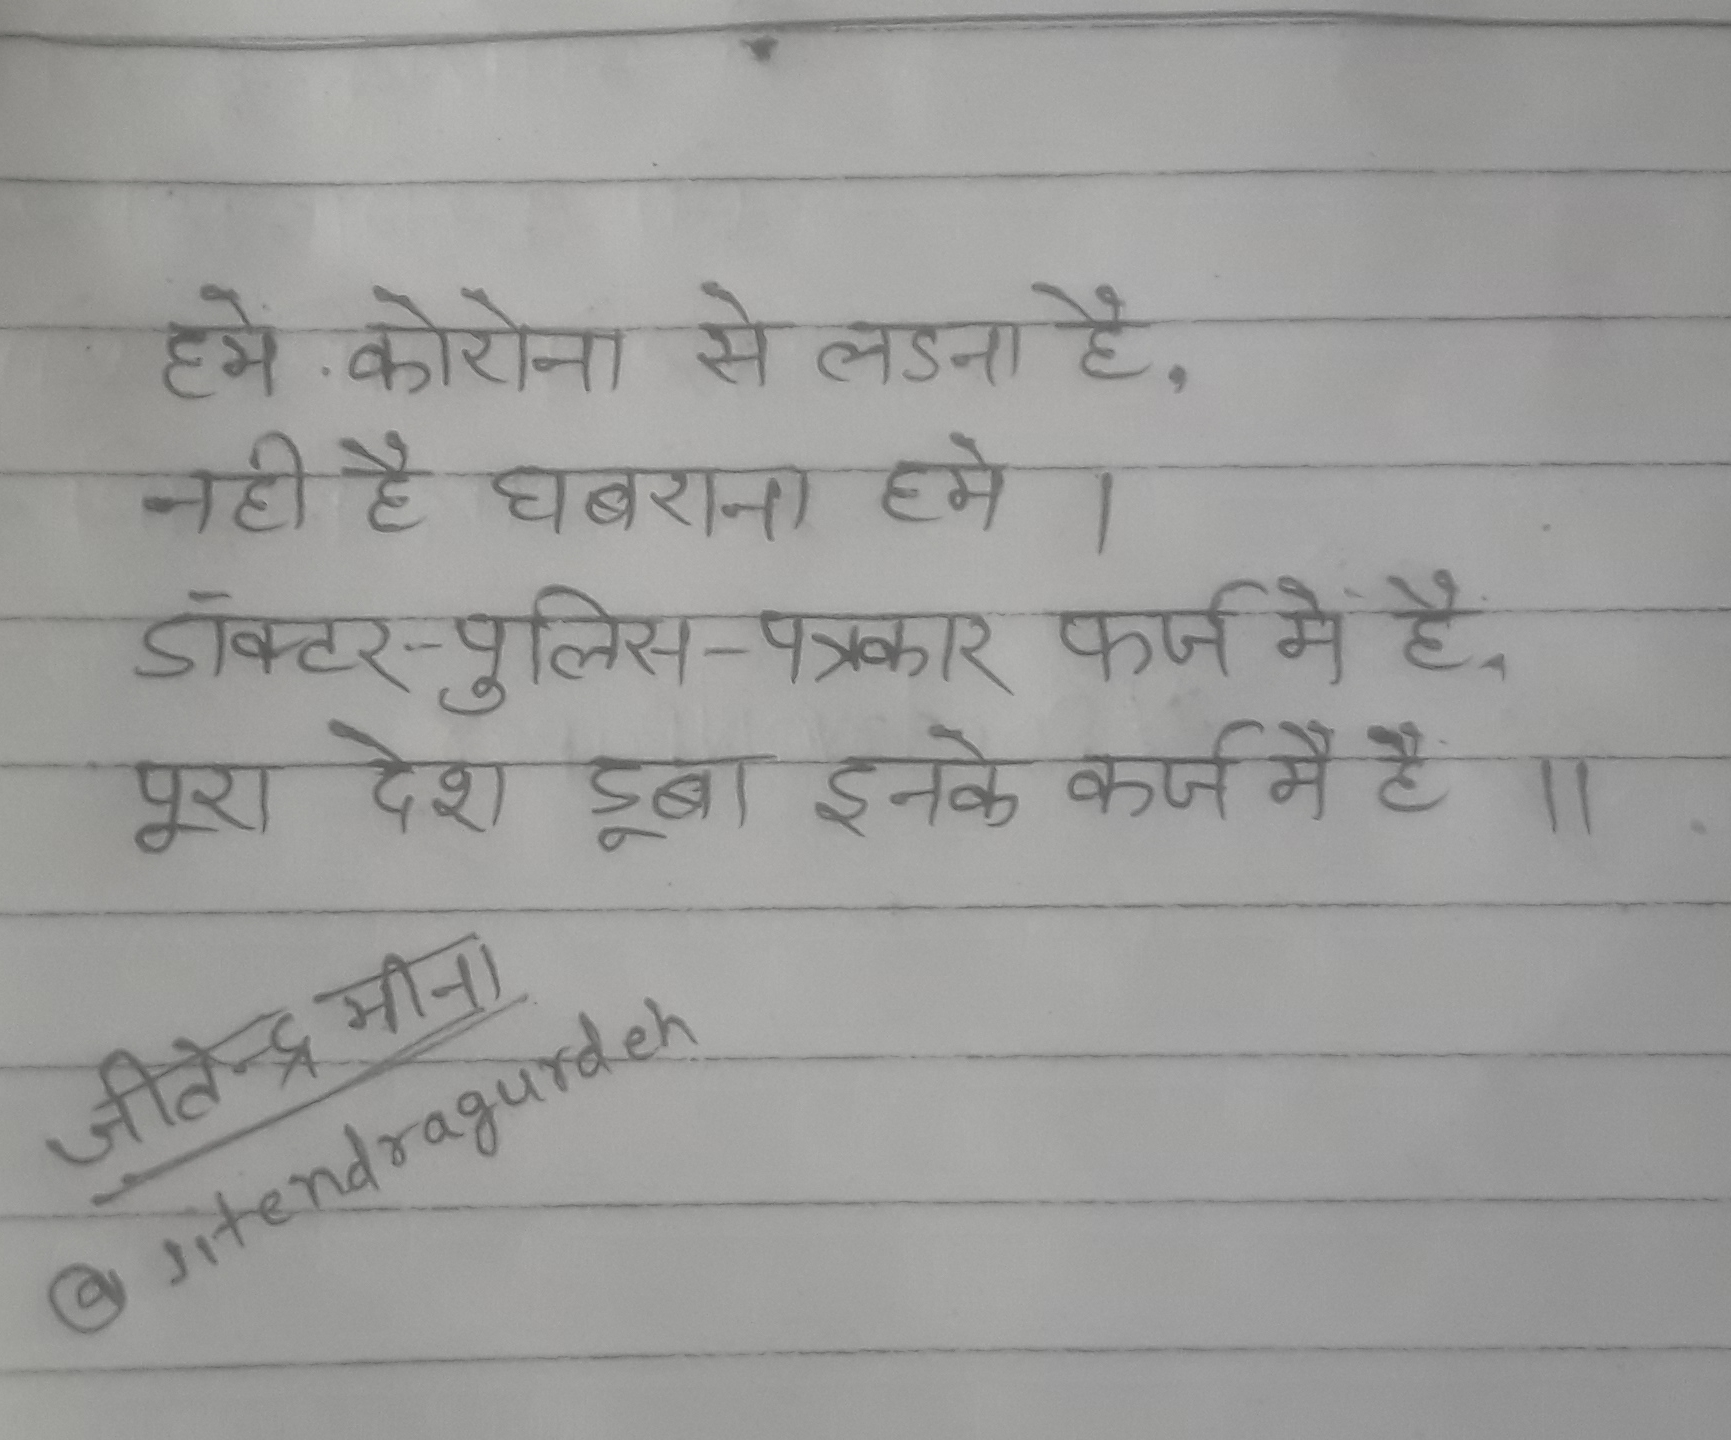 हमे कोरोना से लडना है,
नही है घबराना हमे ।
डॉक्टर-पुलिस-पत्रकार फर्ज मे है,
पूरा देश डूबा इनके कर्ज मै है ॥
जीतेन्द्र मीना
@jitendragurdeh